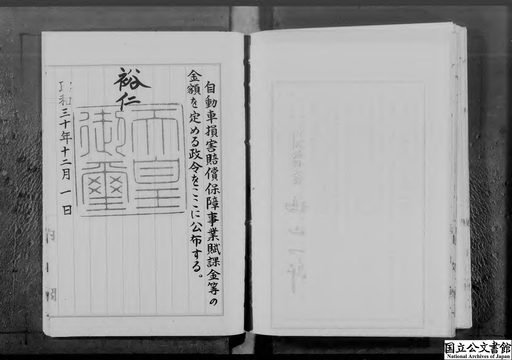 自動車損害賠償保障事業賦課金等の
金額を定める政令をここに公布する。
裕仁
天皇
御璽
昭和三十年十二月一日
国立公文書館
National Archives of Japan